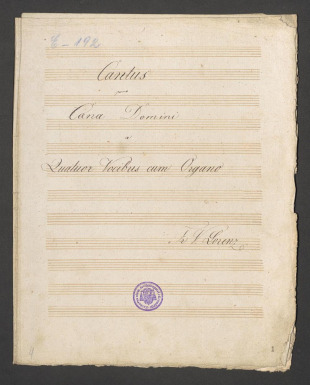 Cantus
Cæna Domini
Quatuor Vocibus cum Organo
Lorenz